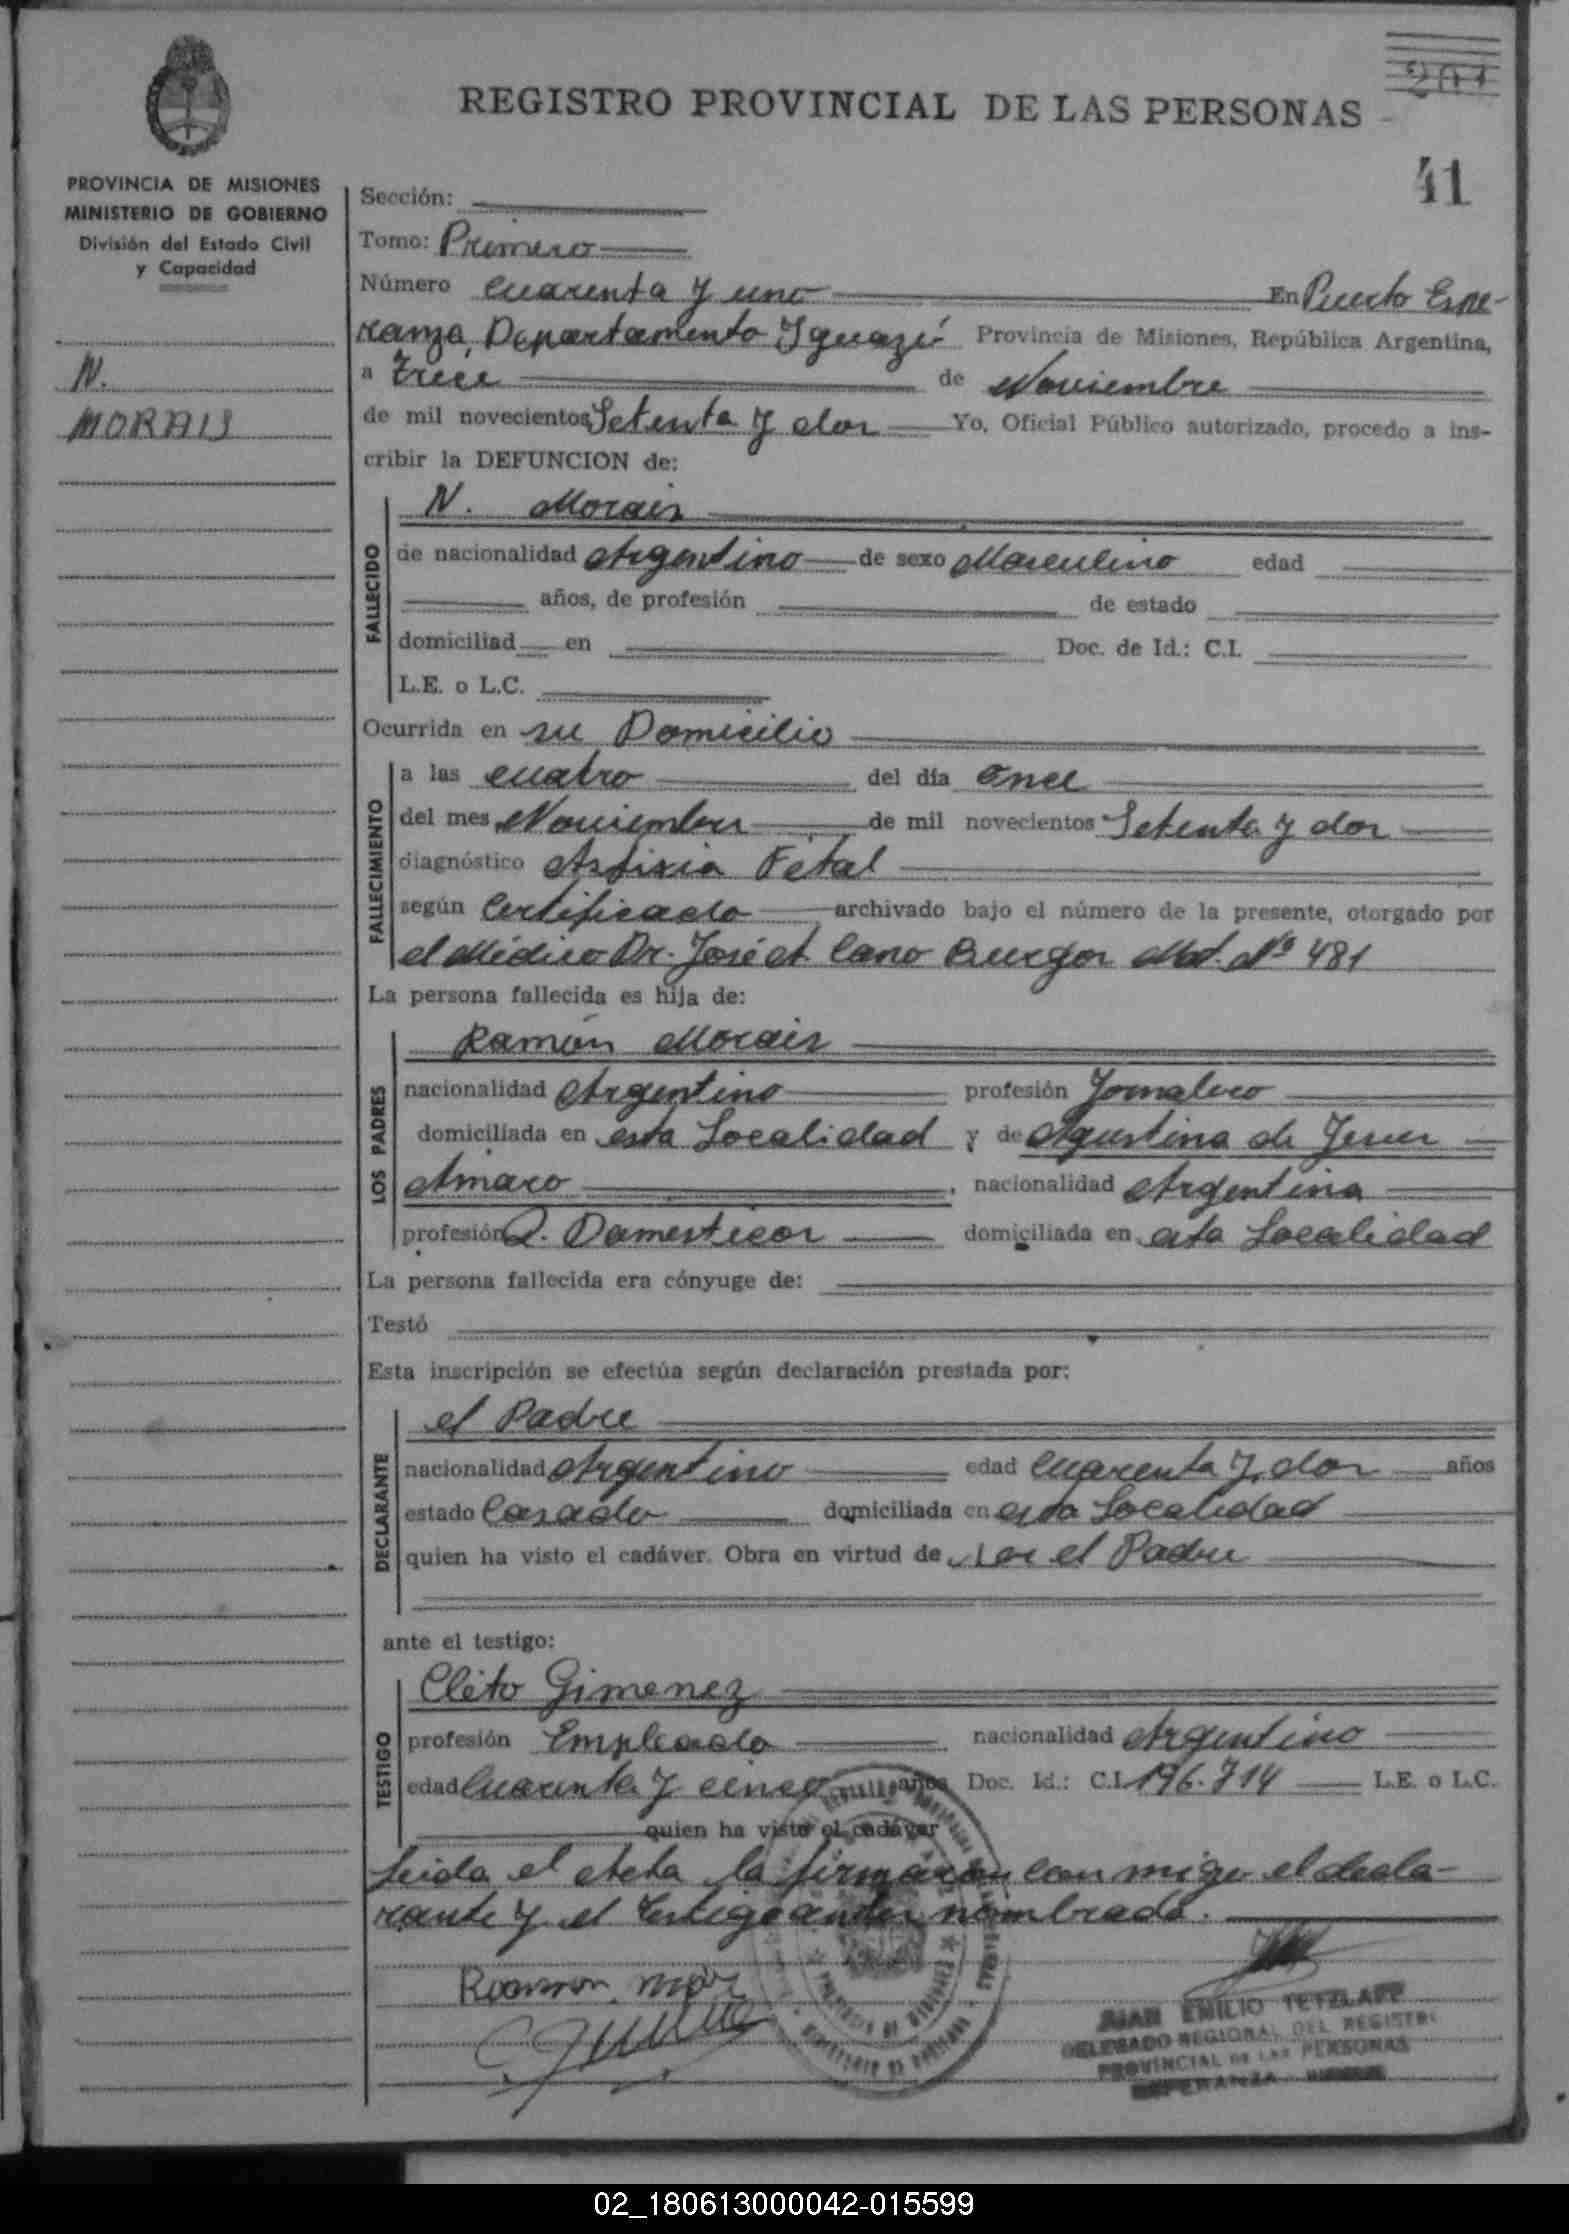 REGISTRO PROVINCIAL DE LAS PERSONAS
201
41
PROVINCIA DE MISIONES
MINISTERIO DE GOBIERNO
División del Estado Civil
y Capacidad
N.
MORAIS
Sección:
Tomo: Primero
Número cuarenta y uno En Puerto Espe-
ranza, Departamento Iguazú Provincia de Misiones, República Argentina,
a trece de Noviembre
de mil novecientos Setenta y dos Yo, Oficial Público autorizado, procedo a ins-
cribir la DEFUNCION de:
FALLECIDO
N. Morais
de nacionalidad Argentino de sexo Masculino edad
años, de profesión de estado
domiciliad en Doc. de Id.: C.I.
L.E. o L.C.
Ocurrida en su Domicilio
FALLECIMIENTO
a las cuatro del día once
del mes Noviembre de mil novecientos Setenta y dos
diagnóstico Asfixia Fetal
según Certificado archivado bajo el número de la presente, otorgado por
el Médico Dr. José A. Cano Burgos Mat. Nº 481
La persona fallecida es hija de:
LOS PADRES
Ramón Morais
nacionalidad Argentino profesión Jornalero
domiciliada en esta Localidad y de Agustina de Jesus
Amaro, nacionalidad Argentina
profesión Q. Domesticos domiciliada en esta Localidad
La persona fallecida era cónyuge de:
Testó
Esta inscripción se efectúa según declaración prestada por:
DECLARANTE
el Padre
nacionalidad Argentino edad cuarenta y dos años
estado Casado domiciliada en esta Localidad
quien ha visto el cadáver. Obra en virtud de ser el Padre
ante el testigo:
TESTIGO
Cléto Gimenez
profesión Empleado nacionalidad Argentino
edad cuarenta y cinco años Doc. Id.: C.I. 196.714 L.E. o L.C.
quien ha visto el cadáver
Leida el Acta, la firmaran conmigo el decla-
rante y el testigo antes nombrado.
Ramon mor
JUAN EMILIO TETZLAFF
DELEGADO REGIONAL DEL REGISTRO
PROVINCIAL DE LAS PERSONAS
ESPERANZA
02_180613000042-015599